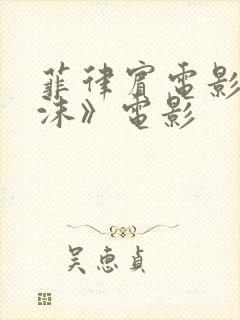 菲律宾電影
沫》電影
吴惠貞